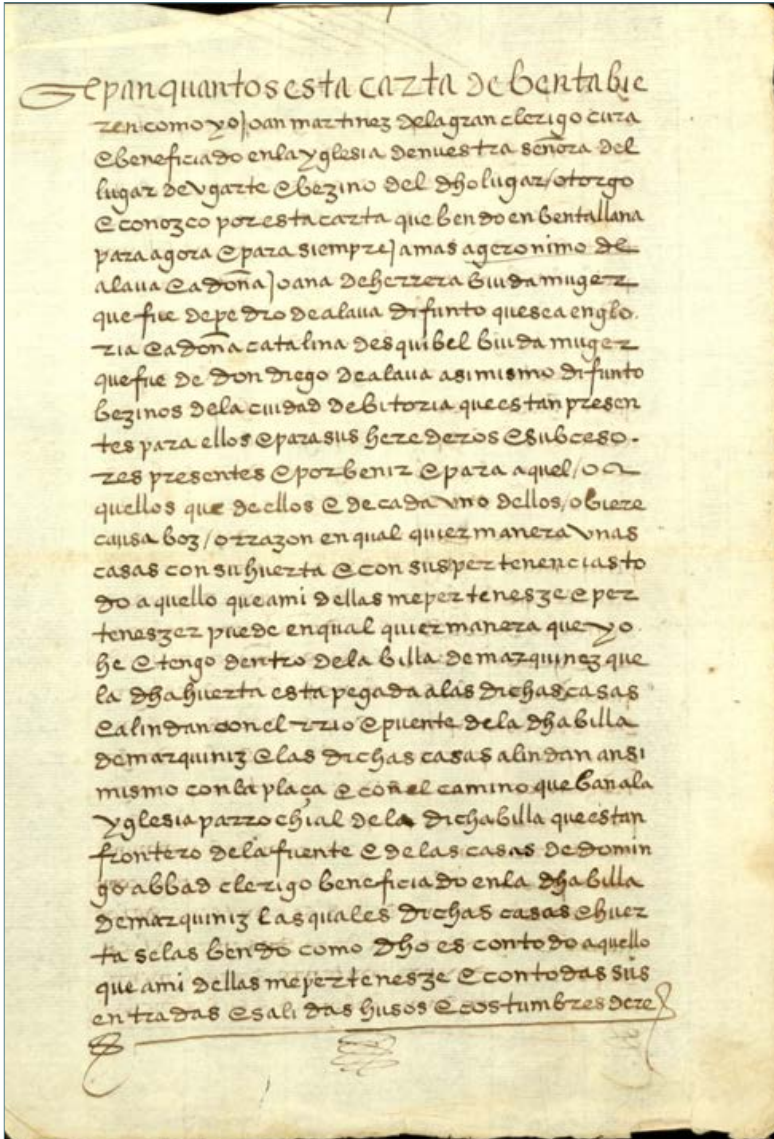 Sepan quantos esta carta de benta bie
ren como yo Joan martinez de lagran clerigo cura
e beneficiado en la yglesia de nuestra señora del
lugar de vgarte e bezino del dho lugar / otorgo
e conozco por esta carta que bendo en benta llana
para agora e para siempre Jamas a geronimo de
alaua e a doña Joana de herrera biuda muger
que fue de pedro de alaua difunto que sea en glo.
ria e a doña catalina desquibel biuda muger
que fue de don diego de alaua asi mismo difunto
bezinos de la ciudad de bitoria que estan presen
tes para ellos e para sus herederos e subceso.
res presentes e por benir e para aquel / o a
quellos que de ellos e de cada vno dellos / obiere
causa boz / o rrazon en qual quier manera vnas
casas con su huerta e con sus pertenencias to
do aquello que a mi dellas me pertenesze e per
teneszer puede en qual quier manera que yo
he e tengo dentro de la billa de marquinez que
la dha huerta esta pegada a las dichas casas
e alindan con el rrio e puente de la dha billa
de marquiniz e las dichas casas alindan ansi
mismo con la plaça e con el camino que ban a la
yglesia parrochial de la dicha billa que estan
frontero de la fuente e de las casas de domin
go abbad clerigo beneficiado en la dha billa
de marquiniz las quales dichas casas e huer
ta se las bendo como dho es con todo aquello
que a mi dellas me pertenesze e con todas sus
entradas e salidas husos e costumbres dere